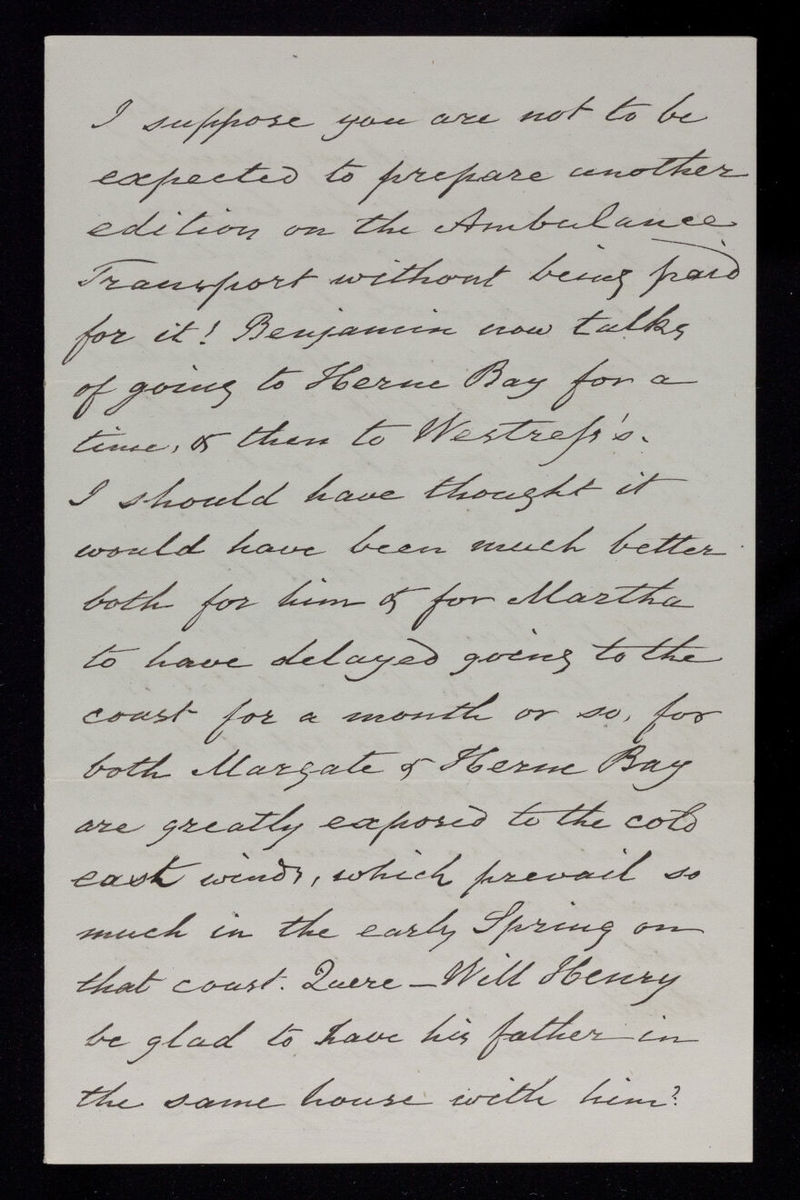 I suppose you are not to be
expected to prepare another
edition on the Ambulance
Transport without being paid
for it! Benjamin now talks
of going to Herne Bay for a
time, & then to
I should have thought it
would have been much better
both for him & for Martha
to have delayed going to the
coast for a month or so, for
both Margate & Herne Bay
are greatly exposed to the cold
east winds, which prevail so
much in the early Spring on
that coast. Quere — Will Henry
be glad to have his father in
the same house with him?